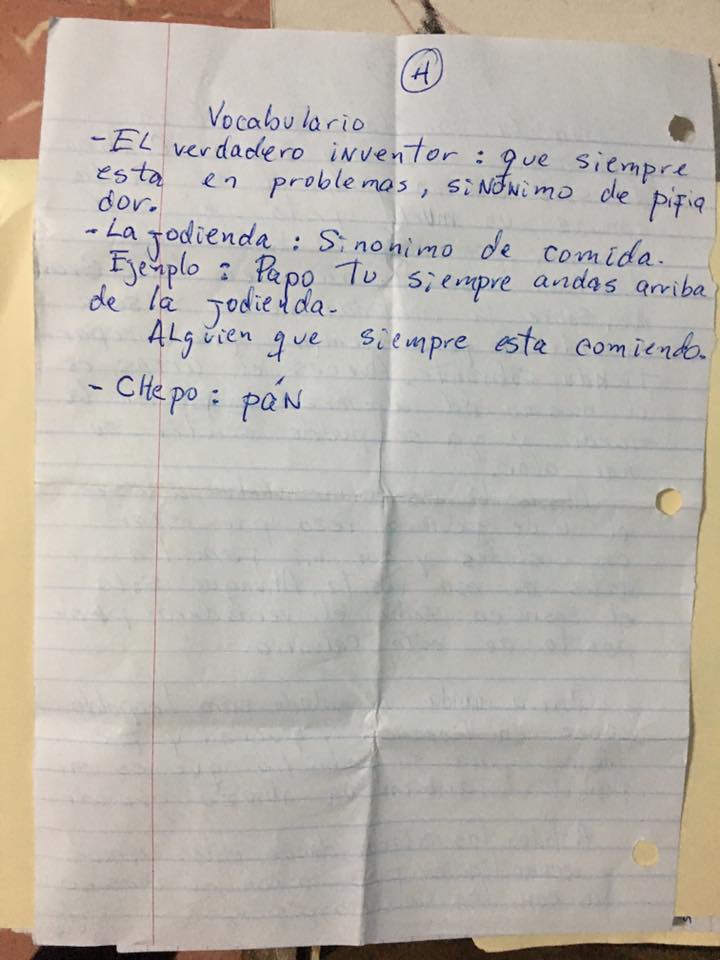 4
Vocabulario
- EL verdadero inventor : que siempre
esta en problemas, siNÓNimo de pifia
dor.
- La jodienda : Sinonimo de comida.
Ejenplo : Papo TU siempre andas arriba
de la jodienda.
ALguien que siempre esta comiendo.
- CHepo : páN